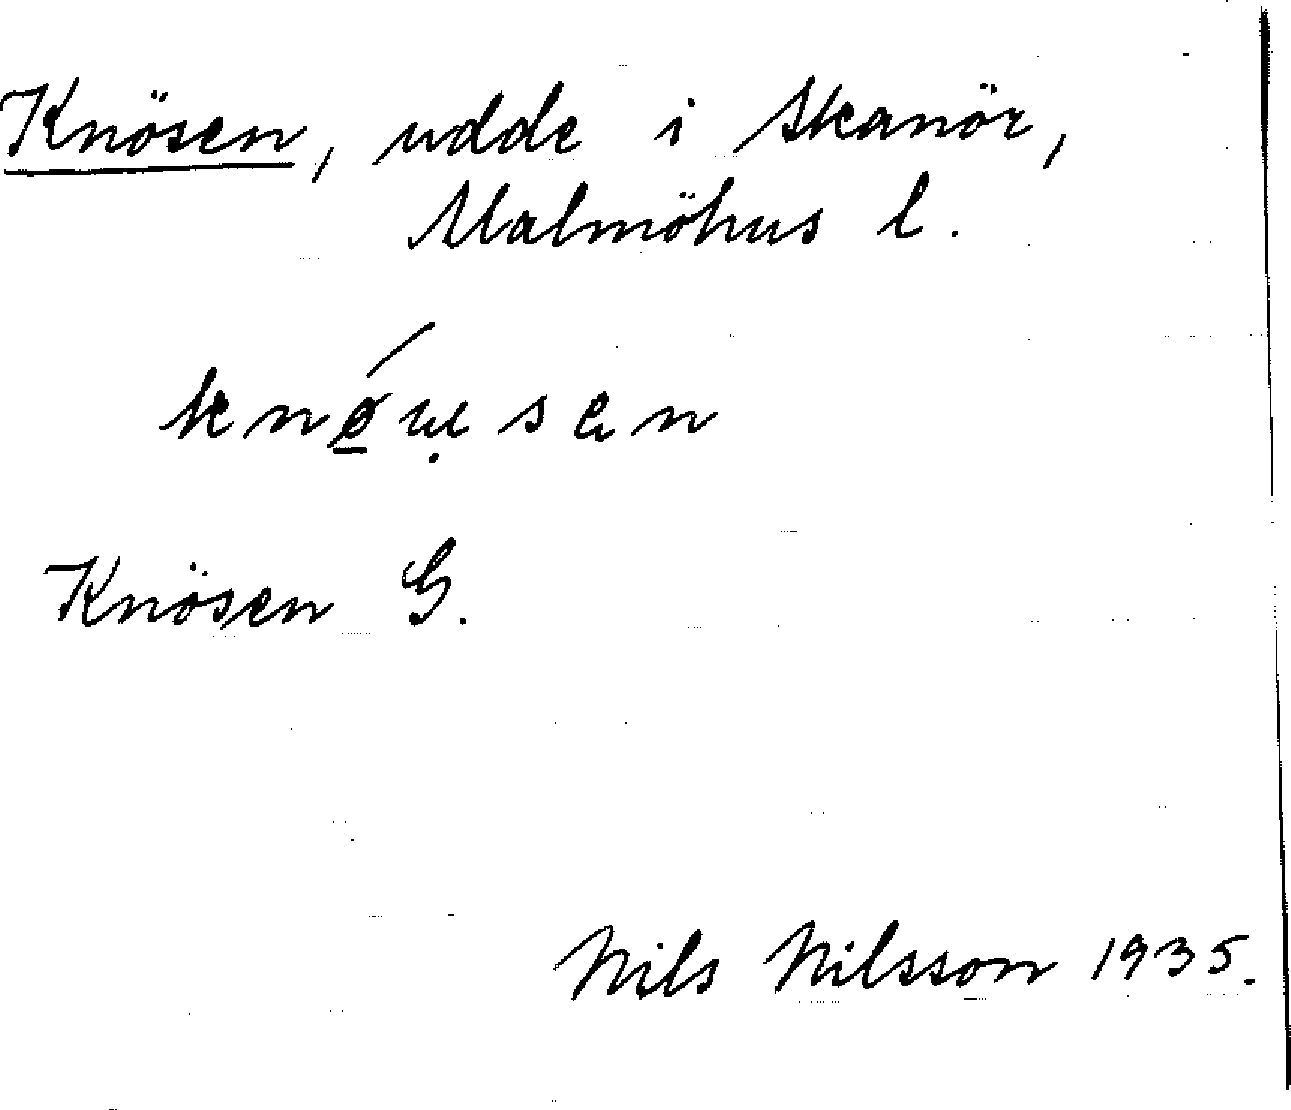 Knösen, udde i Skanör,
Malmöhus l.
Knösen G.
Nils Nilsson 1935.